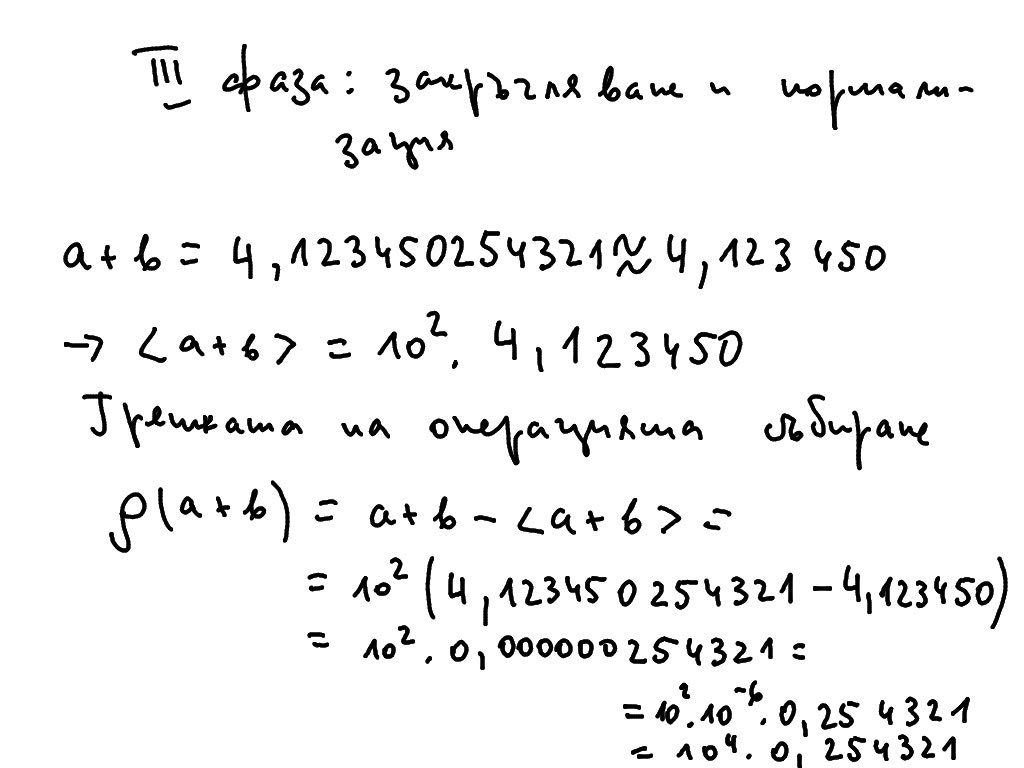 III фаза: закръгляване и нормали-
зация
a + b = 4,123450254321 ≈ 4,123 450
→ <a+b> = 10². 4,123450
Грешката на операцията събиране
ρ(a+b) = a+b - <a+b> =
= 10² (4,123450254321 - 4,123450)
= 10². 0,000000254321 =
= 10².10⁻⁶. 0,254321
= 10⁴. 0,254321